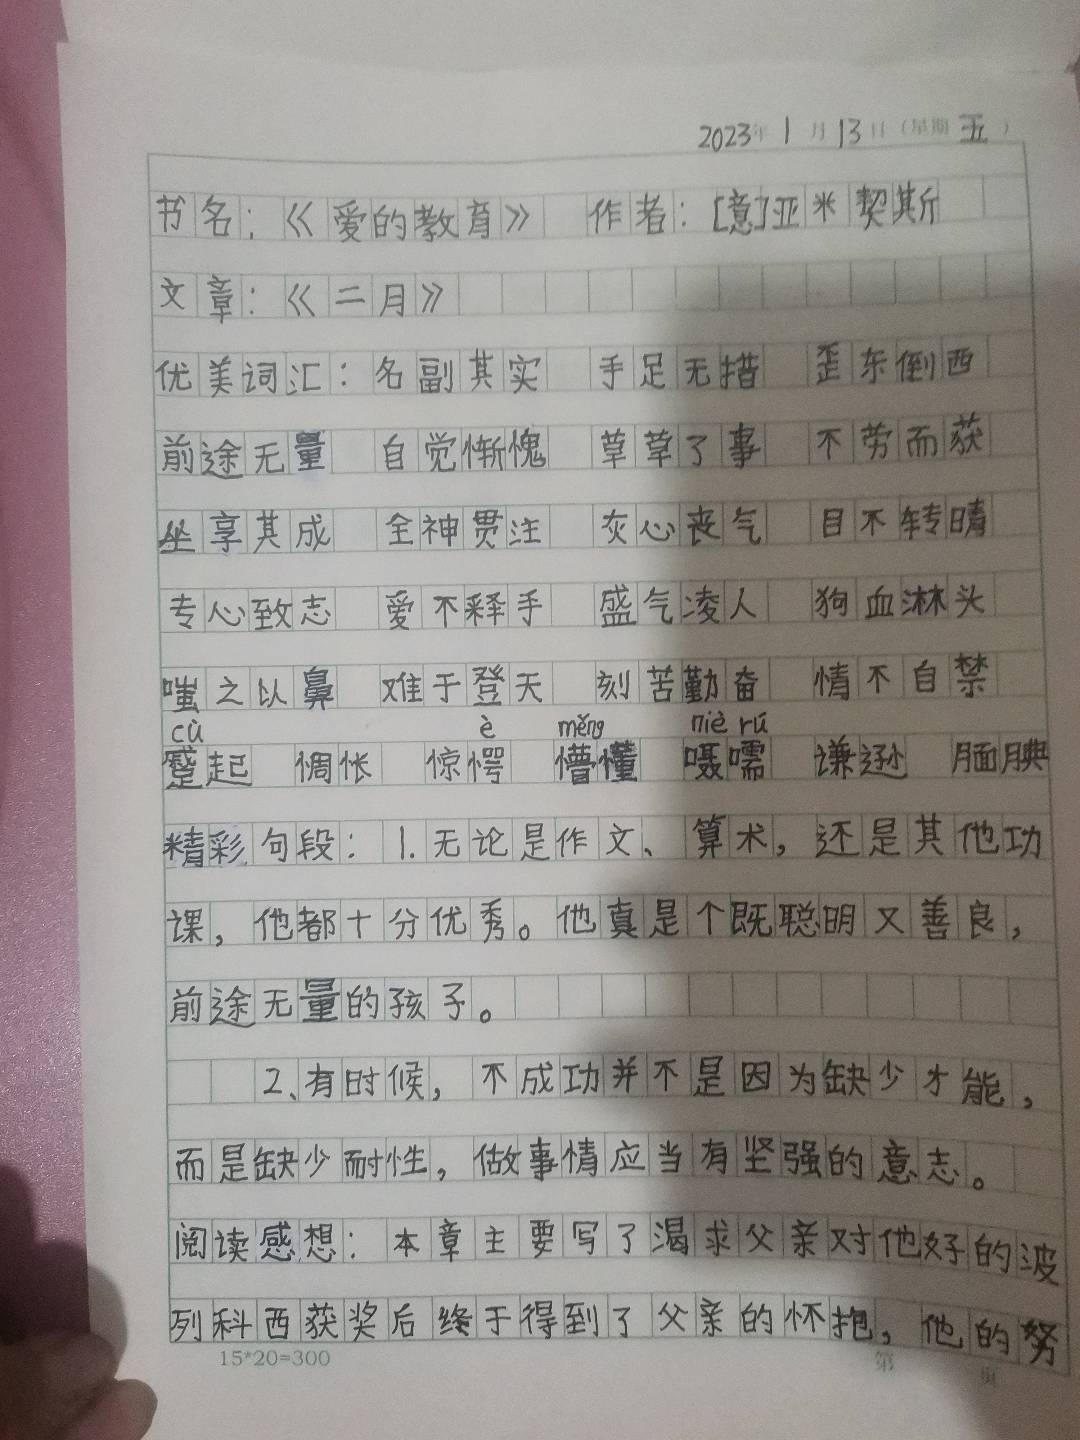 2023年1月13日（星期五）
书名：《爱的教育》 作者：[意]亚米契斯
文章：《二月》
优美词汇：名副其实 手足无措 歪东倒西
前途无量 自觉惭愧 草草了事 不劳而获
坐享其成 全神贯注 灰心丧气 目不转晴
专心致志 爱不释手 盛气凌人 狗血淋头
嗤之以鼻 难于登天 刻苦勤奋 情不自禁
cù è měng niè rú
蹙起 惆怅 惊愕 懵懂 嗫嚅 谦逊 腼腆
精彩句段：1.无论是作文、算术，还是其他功
课，他都十分优秀。他真是个既聪明又善良，
前途无量的孩子。
2、有时候，不成功并不是因为缺少才能，
而是缺少耐性，做事情应当有坚强的意志。
阅读感想：本章主要写了渴求父亲对他好的波
列科西获奖后终于得到了父亲的怀抱，他的努
15*20=300 第 页